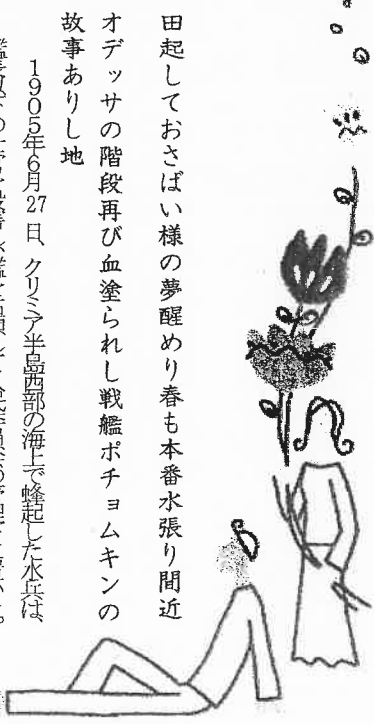 田起しておさばい様の夢醒めり春も本番水張り間近
オデッサの階段再び血塗られし戦艦ポチョムキンの
故事ありし地
1905年6月27日、クリミア半島西部の海上で蜂起した水兵は、